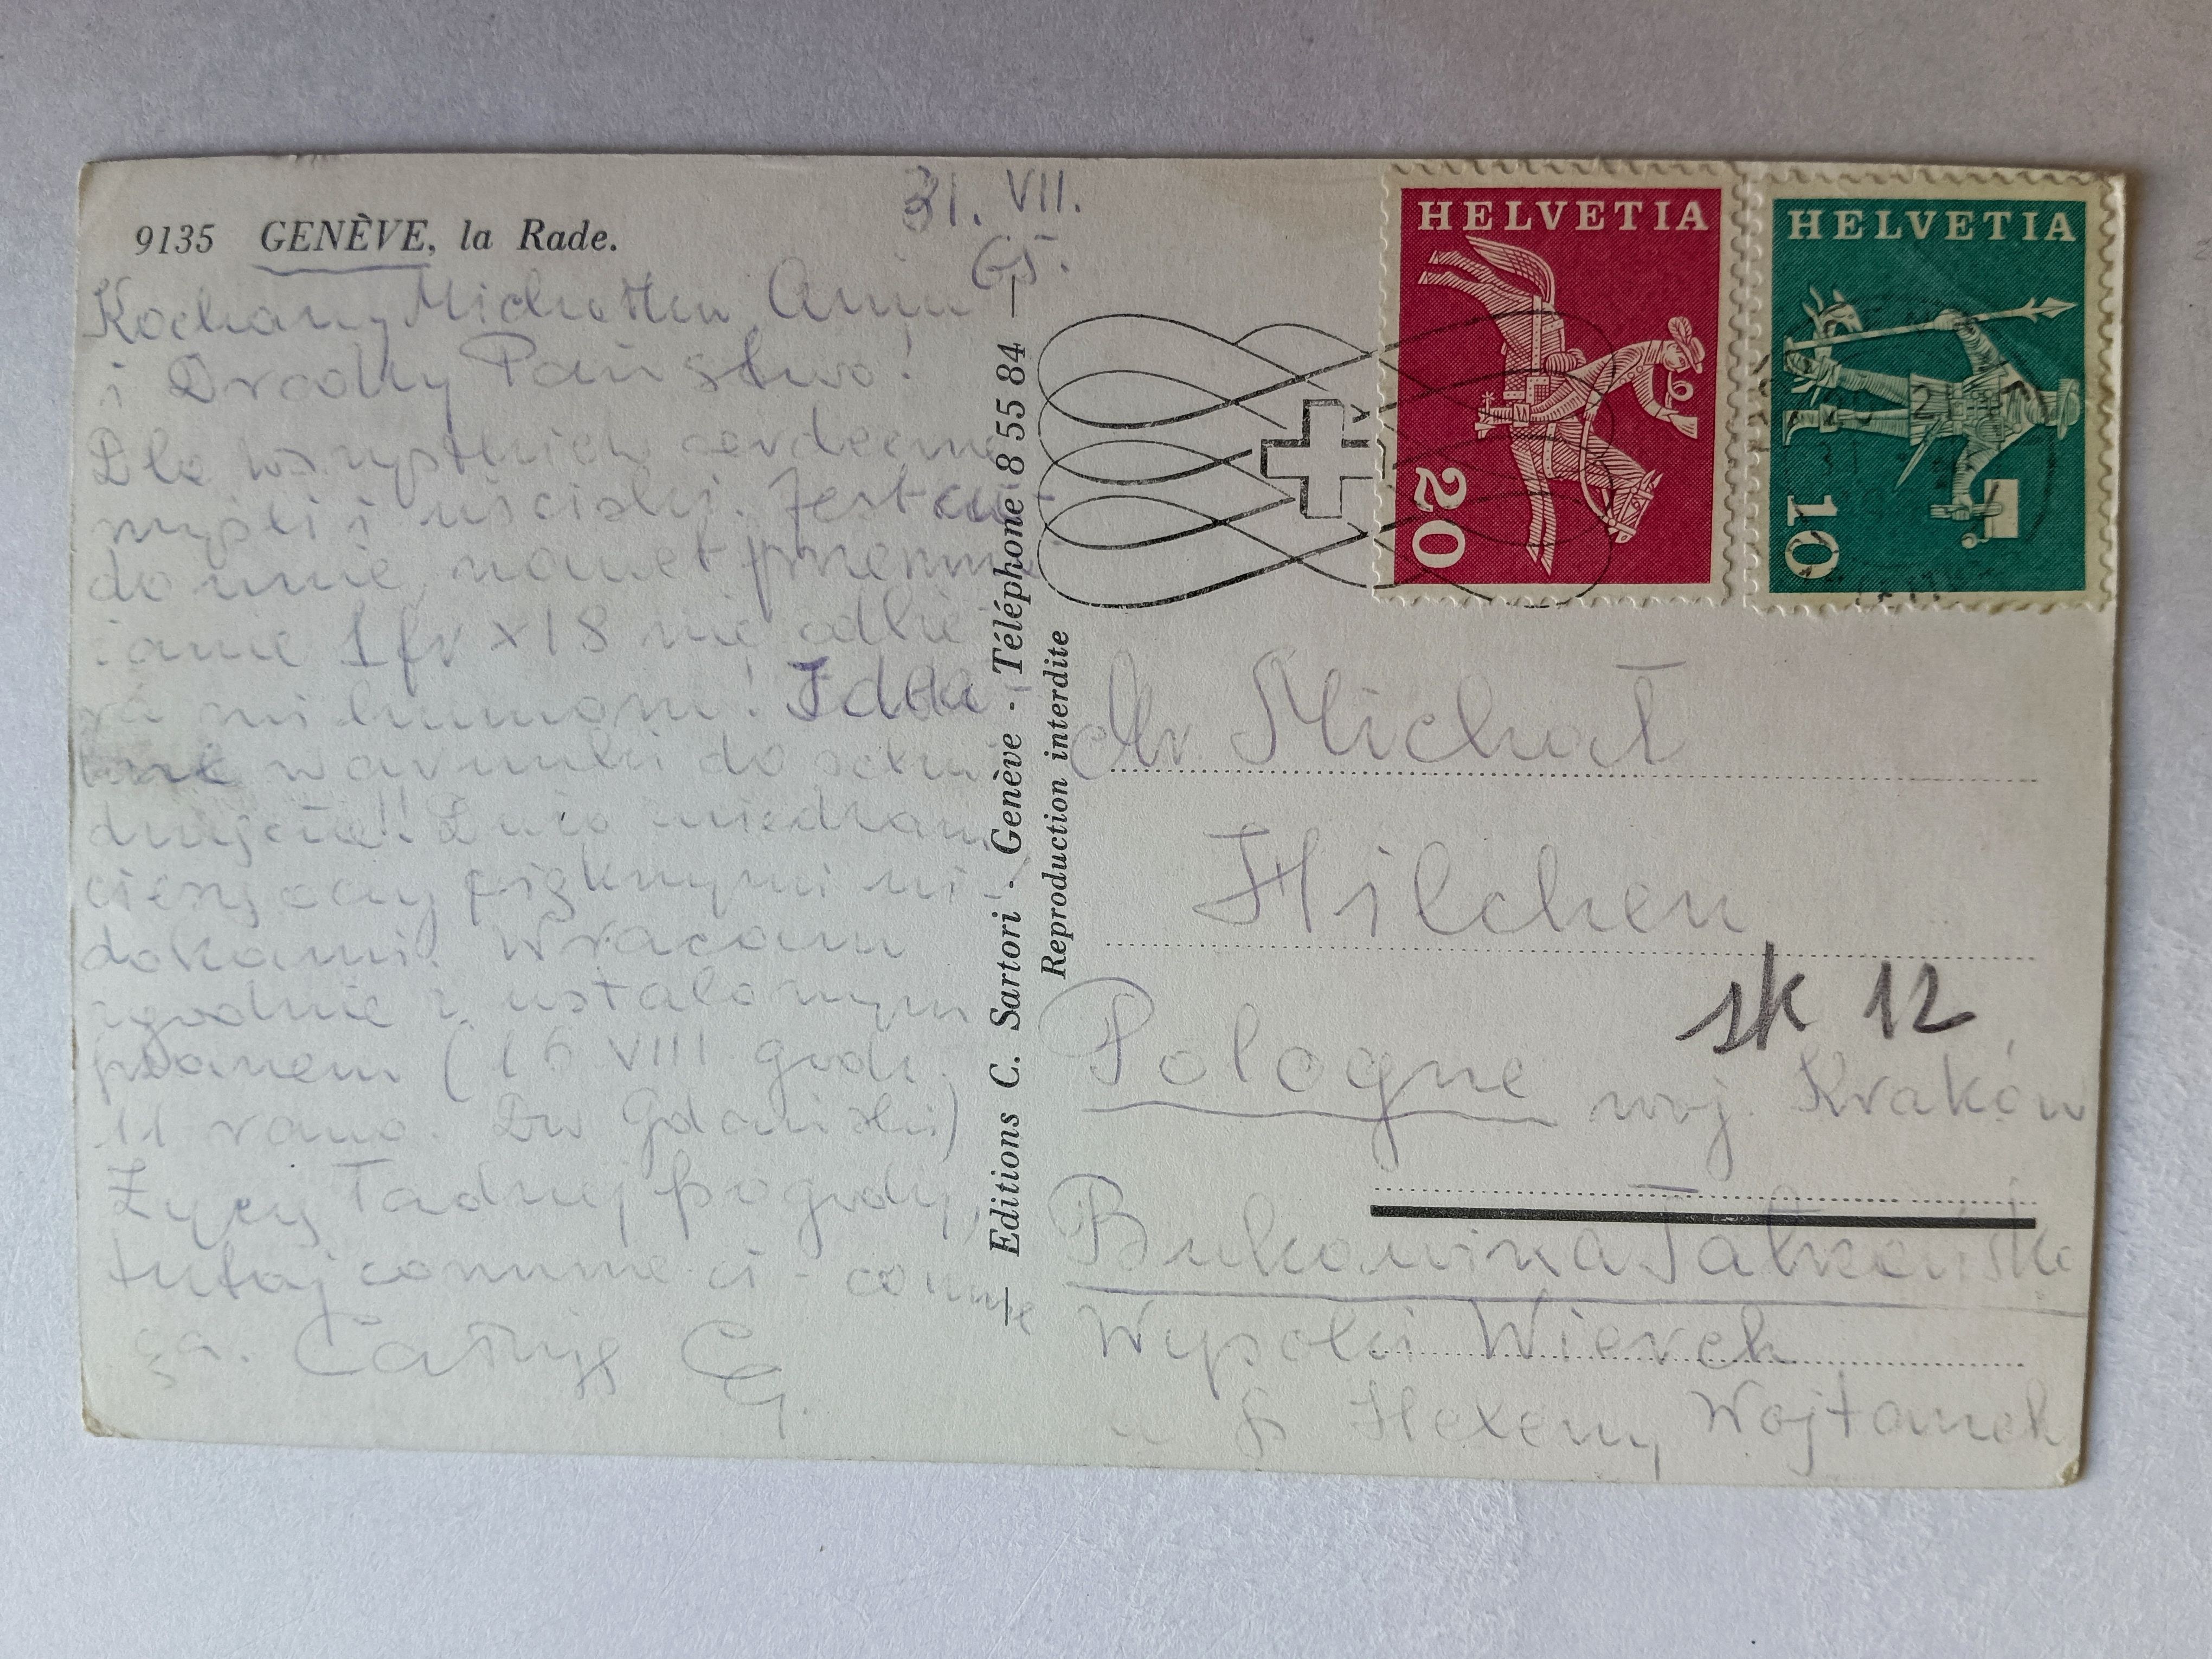 9135 GENÈVE, la Rade.
31. VII.
65.
Kochany Michałku Aniu
i Drodzy Państwo!
Dla wszystkich serdeczne
myśli i uściski. Jest cu-
downie, nawet przemna-
żanie 1 fr x 18 nie odbie-
ra mi humoru!
w do
Żyję
cieszący pięknymi wi-
dokami. Wracam
zgodnie z ustalonym
planem (16 VIII godz.
11 rano. Dw Gdański)
Życzę ładnej pogody,
tutaj comme ci - comme
ça. Całuję
G.
— Editions C. Sartori - Genève - Téléphone 8 55 84 —
Reproduction interdite
HELVETIA
20
HELVETIA
10
Mr. Michał
Hilchen
sk 12
Pologne woj. Kraków
Bukowina Tatrzańska
Wysoki Wierch
u p. Heleny Wojtanek